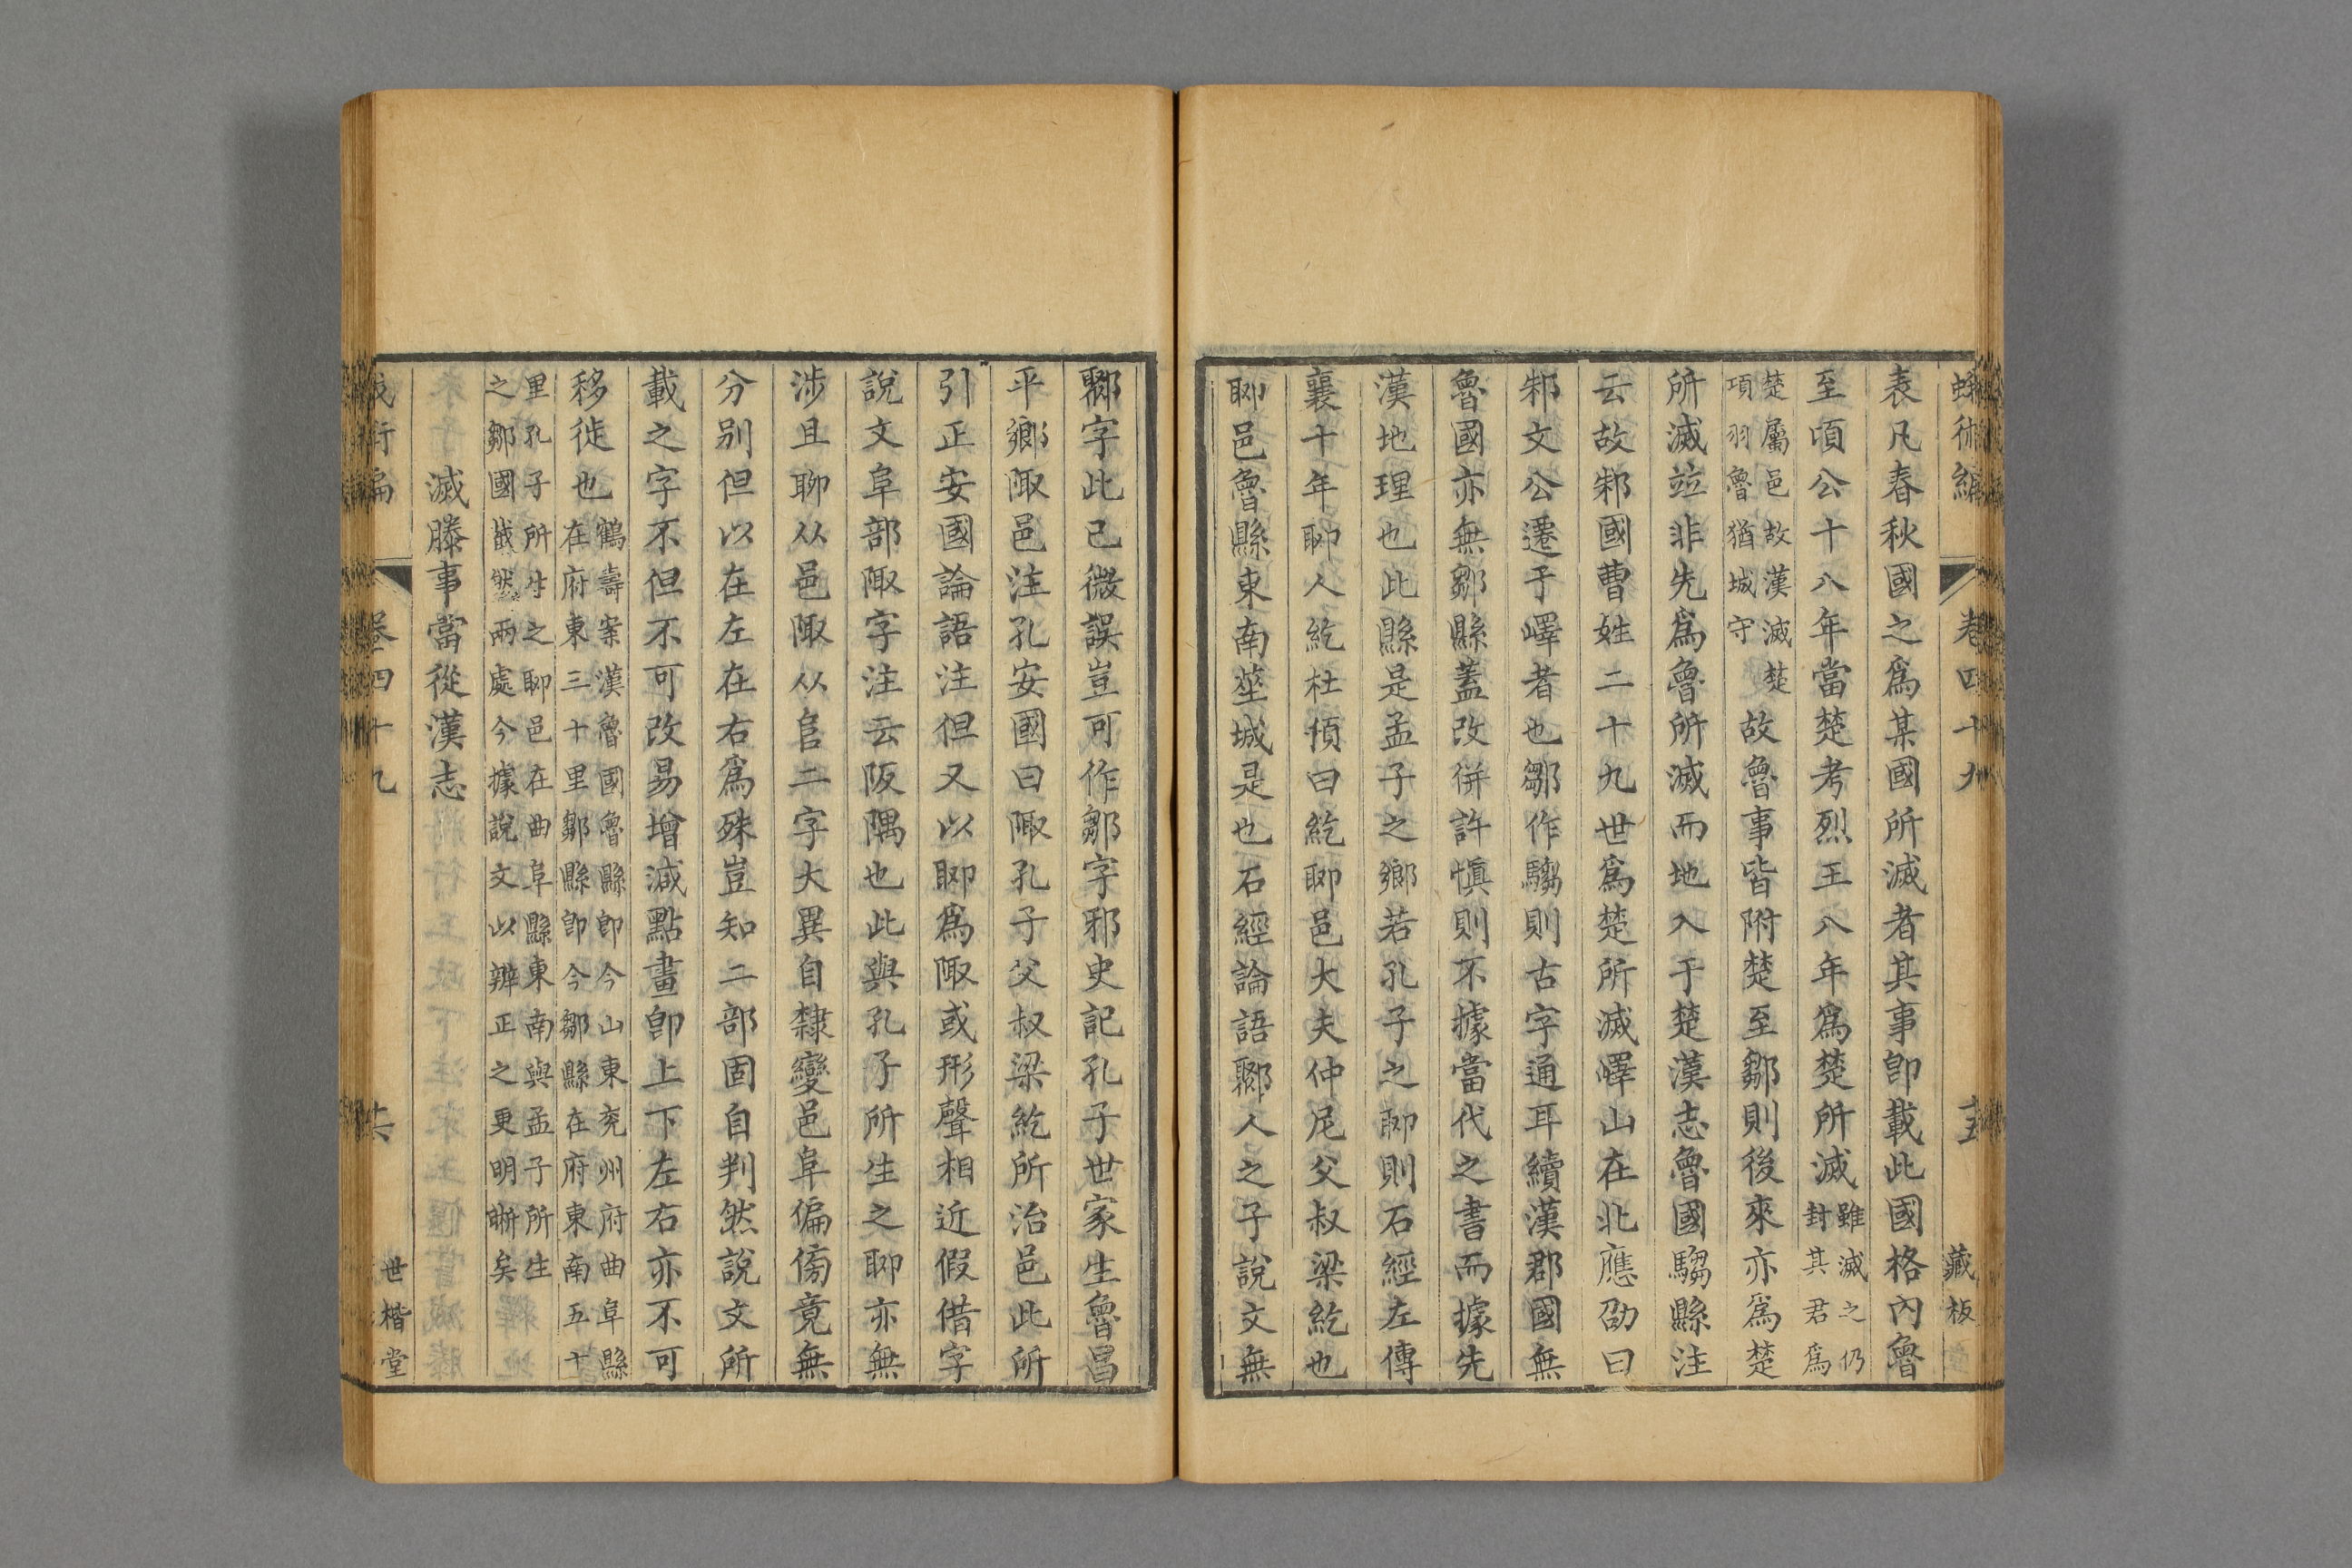 蛾術編 卷四十九 十五 藏板
表凡春秋國之爲某國所滅者其事卽載此國格內魯
至頃公十八年當楚考烈王八年爲楚所滅雖滅之仍封其君爲
楚屬邑故漢滅楚項羽魯猶城守故魯事皆附楚至鄒則後來亦爲楚
所滅竝非先爲魯所滅而地入于楚漢志魯國騶縣注
云故邾國曹姓二十九世爲楚所滅嶧山在北應劭曰
邾文公遷于嶧者也鄒作騶則古字通耳續漢郡國無
魯國亦無鄒縣蓋改併許愼則不據當代之書而據先
漢地理也此縣是孟子之鄉若孔子之郰則石經左傳
襄十年郰人紇杜預曰紇郰邑大夫仲尼父叔梁紇也
郰邑魯縣東南莝城是也石經論語鄹人之子說文無
鄹字此已微誤豈可作鄒字邪史記孔子世家生魯昌
平鄉陬邑注孔安國曰陬孔子父叔梁紇所治邑此所
引正安國論語注但又以郰爲陬或形聲相近假借字
說文阜部陬字注云阪隅也此與孔子所生之郰亦無
涉且郰从邑陬从𨸏二字大異自隸變邑阜偏傍竟無
分别但以在左在右爲殊豈知二部固自判然說文所
載之字不但不可改易增減點畫卽上下左右亦不可
移徙也鶴壽案漢魯國魯縣卽今山東兖州府曲阜縣在府東三十里鄒縣卽今鄒縣在府東南五十
里孔子所生之郰邑在曲阜縣東南與孟子所生之鄒國截然兩處今據說文以辨正之更明晰矣
滅滕事當從漢志
卷四十九 世楷堂